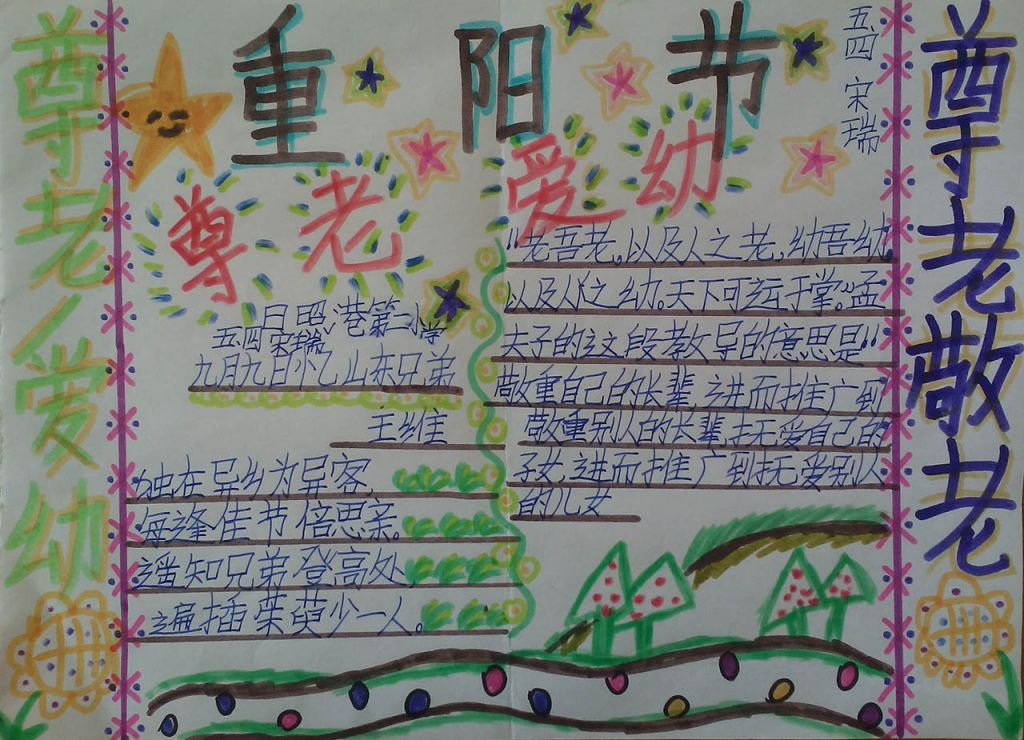 重阳节
五四 宋瑞
尊老爱幼
尊老爱幼
尊老敬老
日照港第二小学
五四宋瑞
九月九日忆山东兄弟
王维
独在异乡为异客
每逢佳节倍思亲。
遥知兄弟登高处,
遍插茱萸少一人。
“老吾老,以及人之老,幼吾幼,
以及人之幼。天下可运于掌。”孟
夫子的这段教导的意思是“
敬重自己的长辈,进而推广到
敬重别人的长辈,抚爱自己的
子女,进而推广到抚爱别人
的儿女